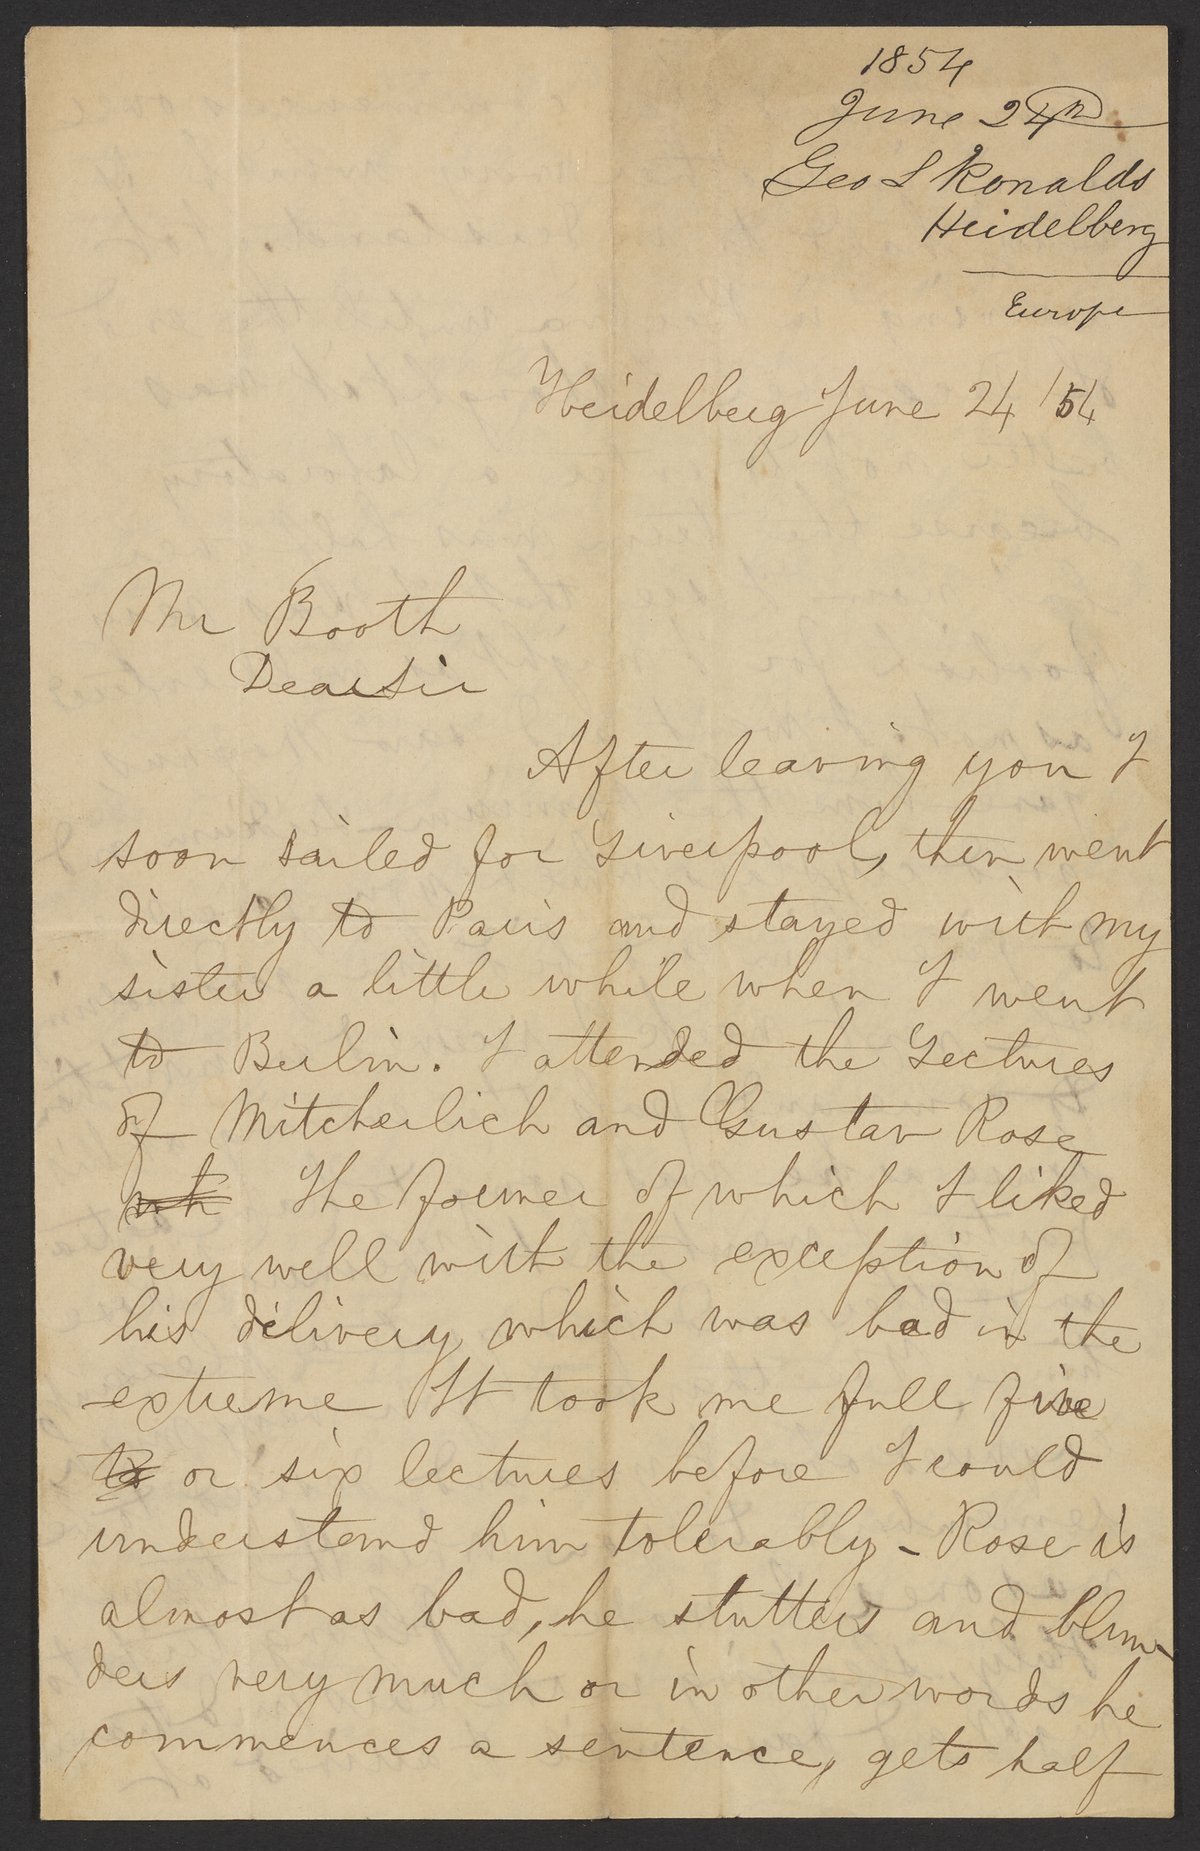 1854
June 24th
Geo L Ronalds
Heidelberg
Europe
Heidelberg June 24 '54
Mr Booth
Dear Sir
After leaving you I
soon sailed for Liverpool, then went
directly to Paris and stayed with my
sister a little while when I went
to Berlin. I attended the Lectures
of Mitcherlich and Gustav Rose
wh The former of which I liked
very well with the exception of
his dilivery which was bad in the
extreme It took me full five
to or six lectures before I could
understand him tolerably - Rose is
almost as bad, he stutters and blun-
ders very much or in other words he
commences a sentence, gets half